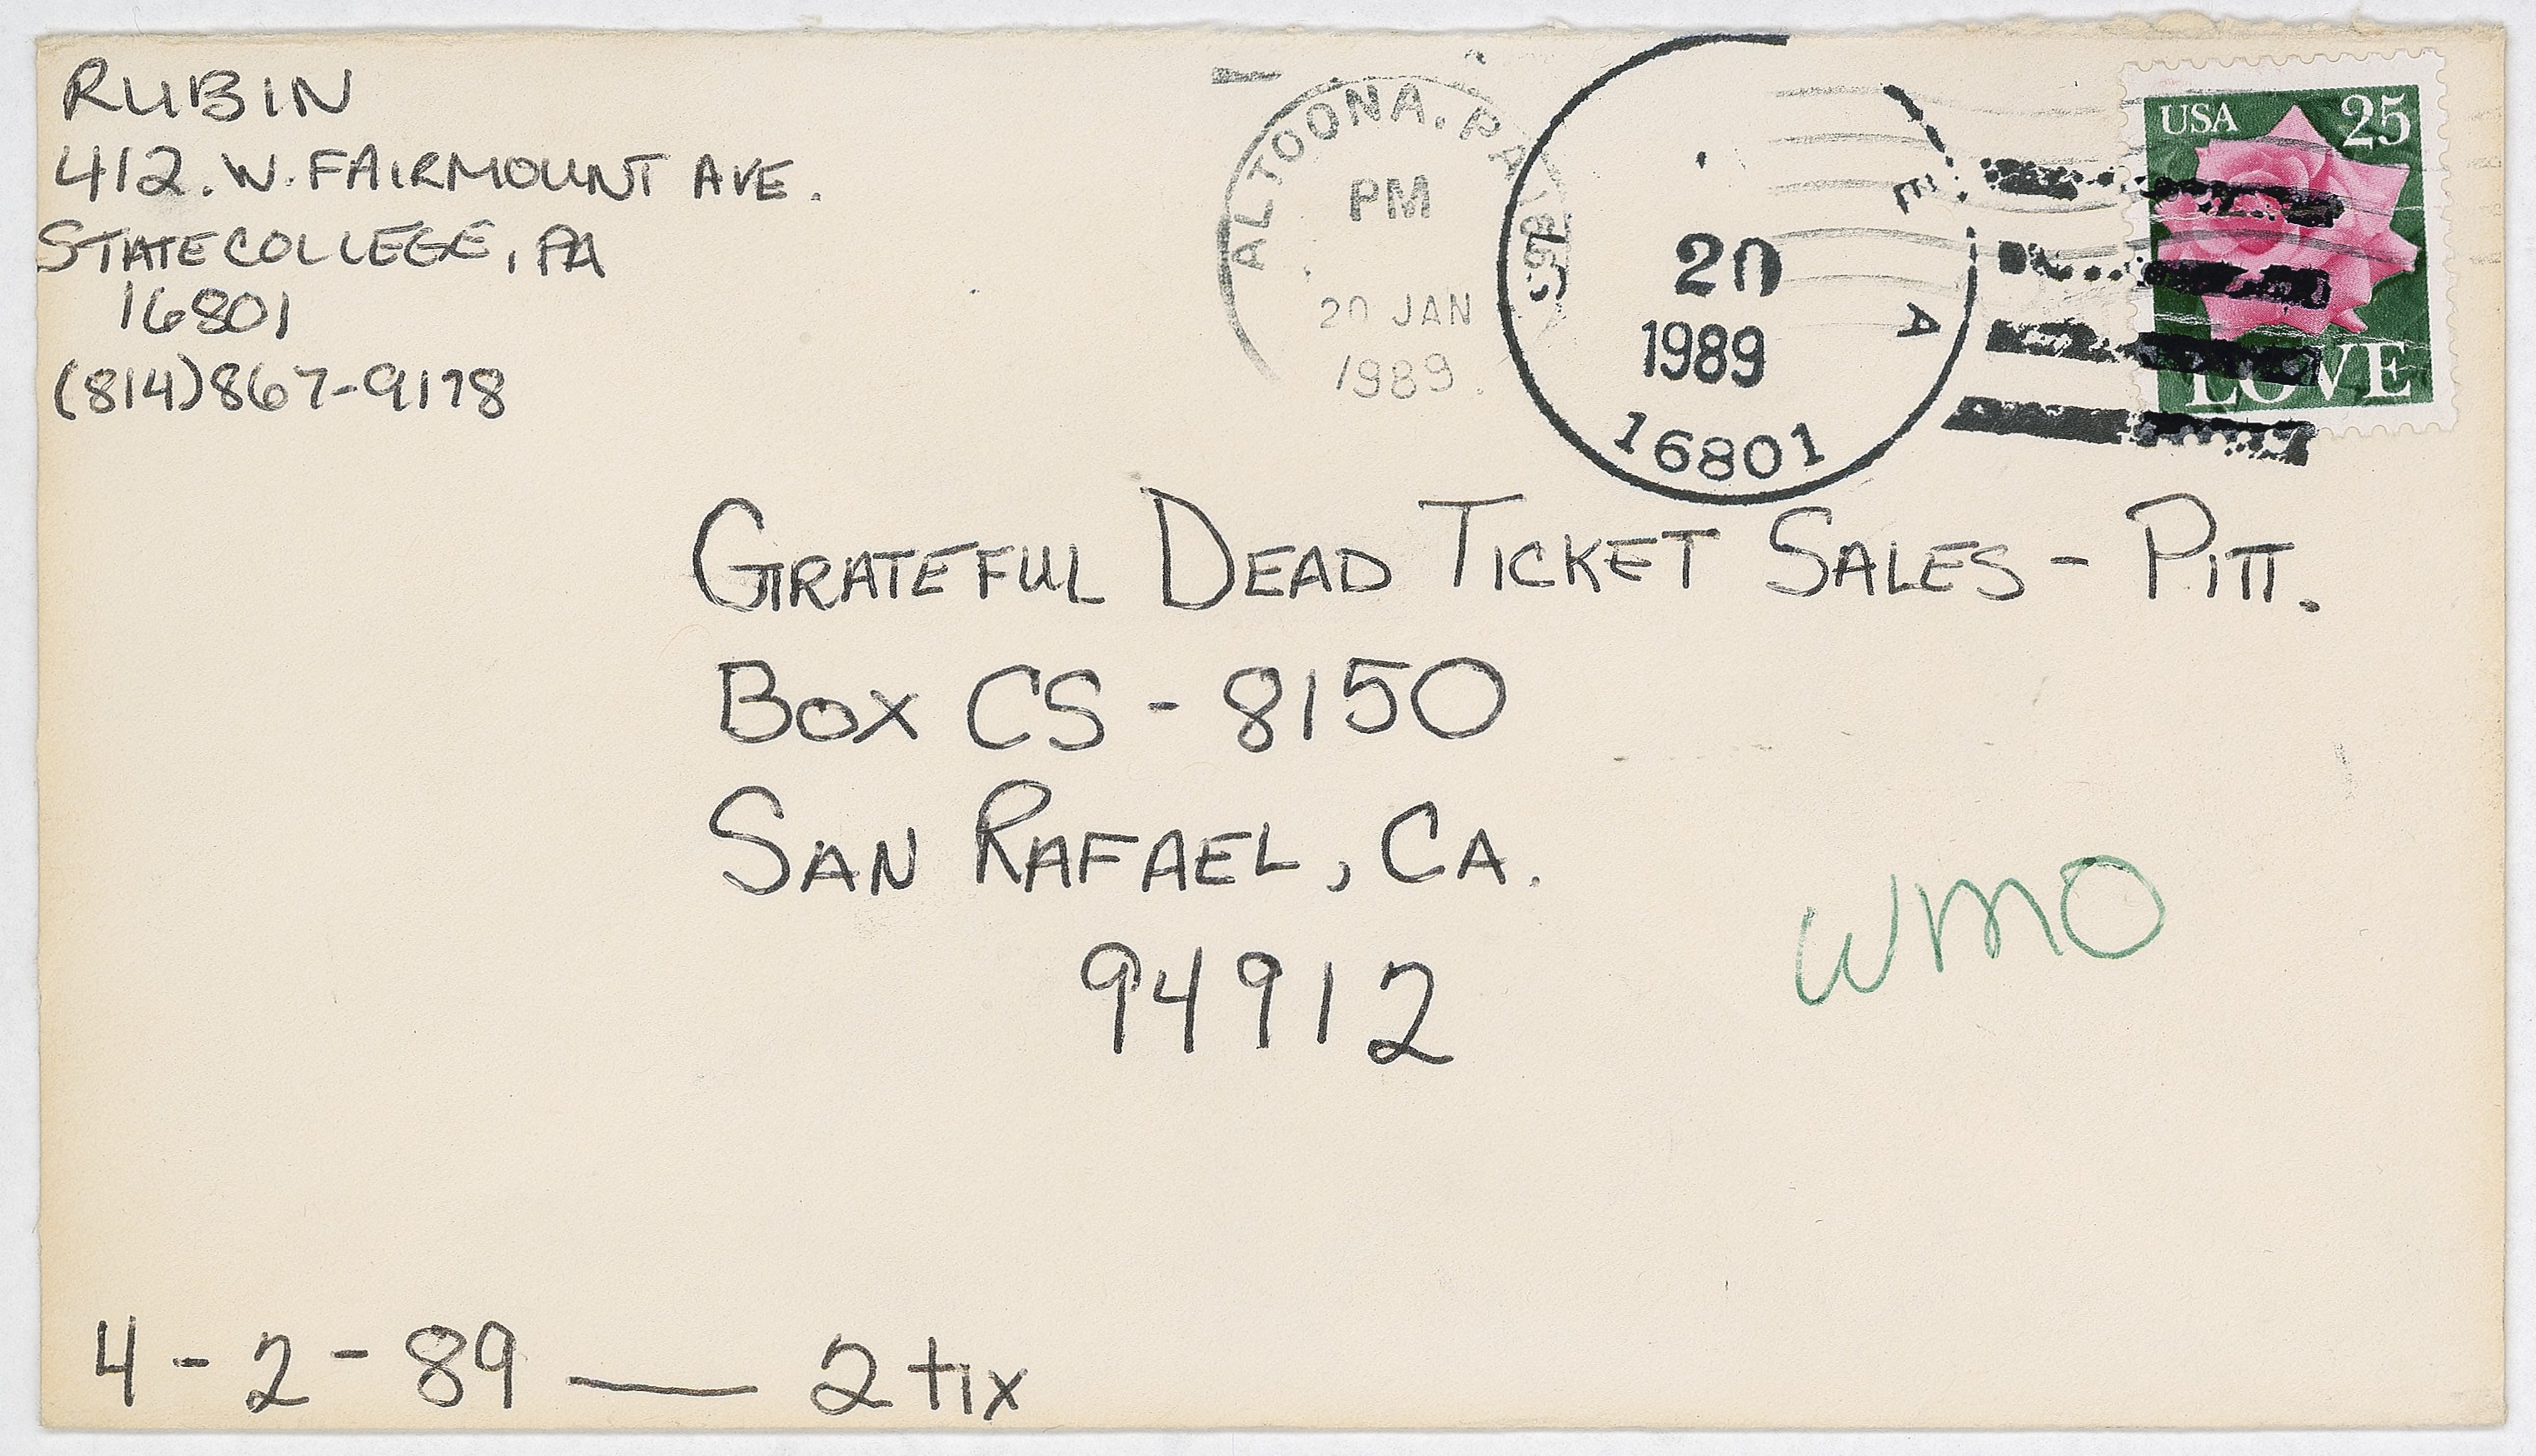 RUBIN
412. W. FAIRMOUNT AVE.
STATE COLLEGE, PA
16801
(814)867-9178
ALTOONA, PA
PM
20 JAN
1989
20
1989
16801
USA 25
LOVE
GRATEFUL DEAD TICKET SALES - PITT.
BOX CS - 8150
SAN RAFAEL, CA.
94912
WMO
4-2-89 — 2 tix